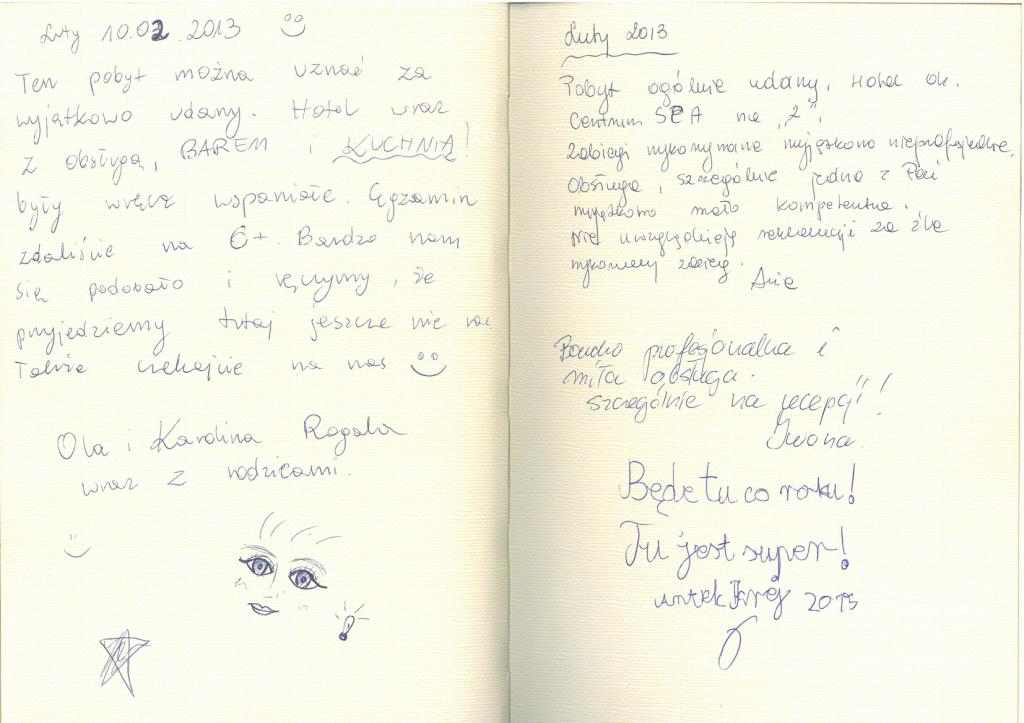 Luty 10.02.2013
Ten pobyt można uznać za
wyjątkowo udany. Hotel wraz
z obsługą, BAREM i KUCHNIĄ!
były wręcz wspaniałe. Egzamin
zdaliście na 6+. Bardzo nam
się podobało i ręczymy, że
przyjedziemy tutaj jeszcze nie raz.
Także czekajcie na nas
Ola i Karolina Rogala
wraz z rodzicami.
Luty 2013
Pobyt ogólnie udany, Hotel ok.
Centrum SPA na „2”.
Zabiegi wykonywane wyjątkowo nieprofesjonalnie.
Obsługa, szczególnie jedna z Pań
wyjątkowo mało kompetentna.
Nie uwzględniają reklamacji za źle
wykonany zabieg.
Ania
Bardzo profesjonalna i
miła obsługa.
szczególnie na recepcji!!
Iwona.
Będę tu co roku!
Tu jest super!
antek 2013